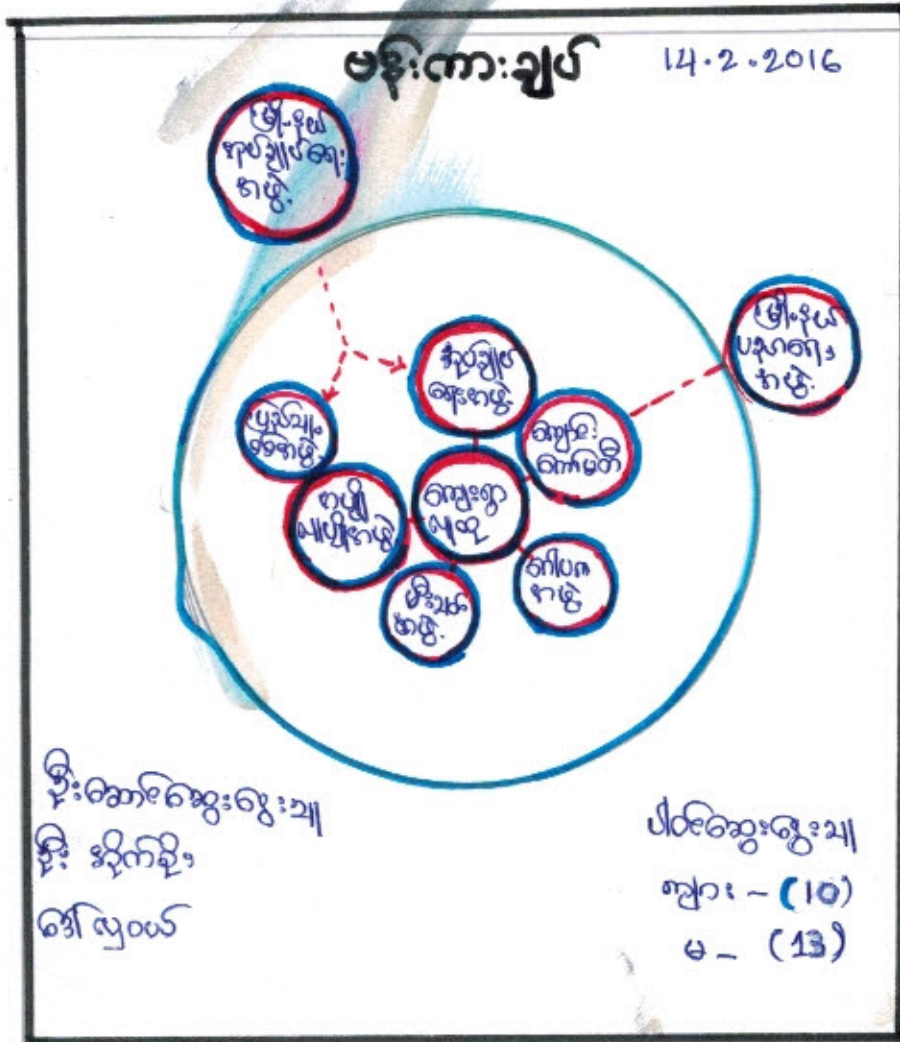 မန်းကားချပ်
14.2.2016
မြို့နယ်
အုပ်ချုပ်ရေး
အဖွဲ့
မြို့နယ်
ပညာရေး
အဖွဲ့
အုပ်ချုပ်
ရေးအဖွဲ့
ကျောင်း
ကော်မတီ
ပြည်သူ့
စစ်အဖွဲ့
အပျို
လူပျိုအဖွဲ့
ကျေးရွာ
လူထု
ဂေါပက
အဖွဲ့
မီးသတ်
အဖွဲ့
ဦးဆောင်ဆွေးနွေးသူ
ဦးအိုက်ခိုး
ဒေါ်လှဝယ်
ပါဝင်ဆွေးနွေးသူ
ကျား - (10)
မ - (13)